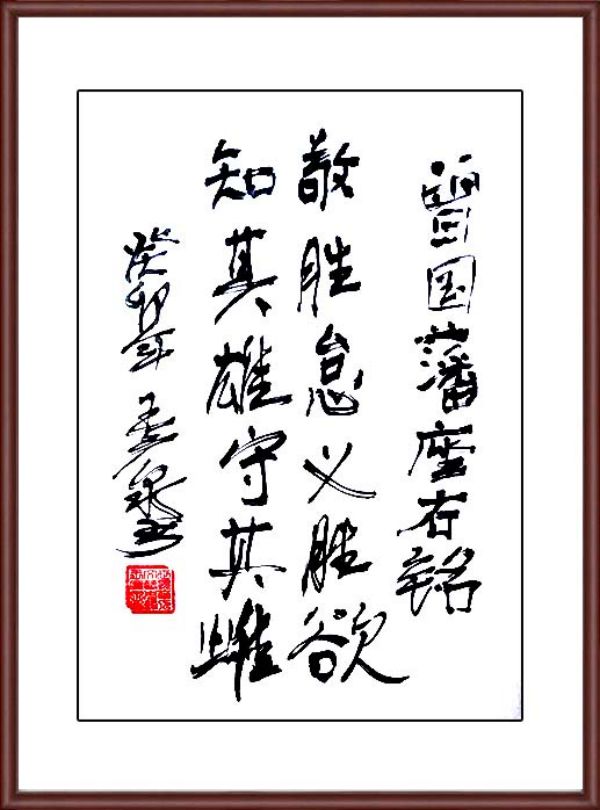 曾国藩座右铭
敬胜怠义胜欲
知其雄守其雌
癸卯年 泉书